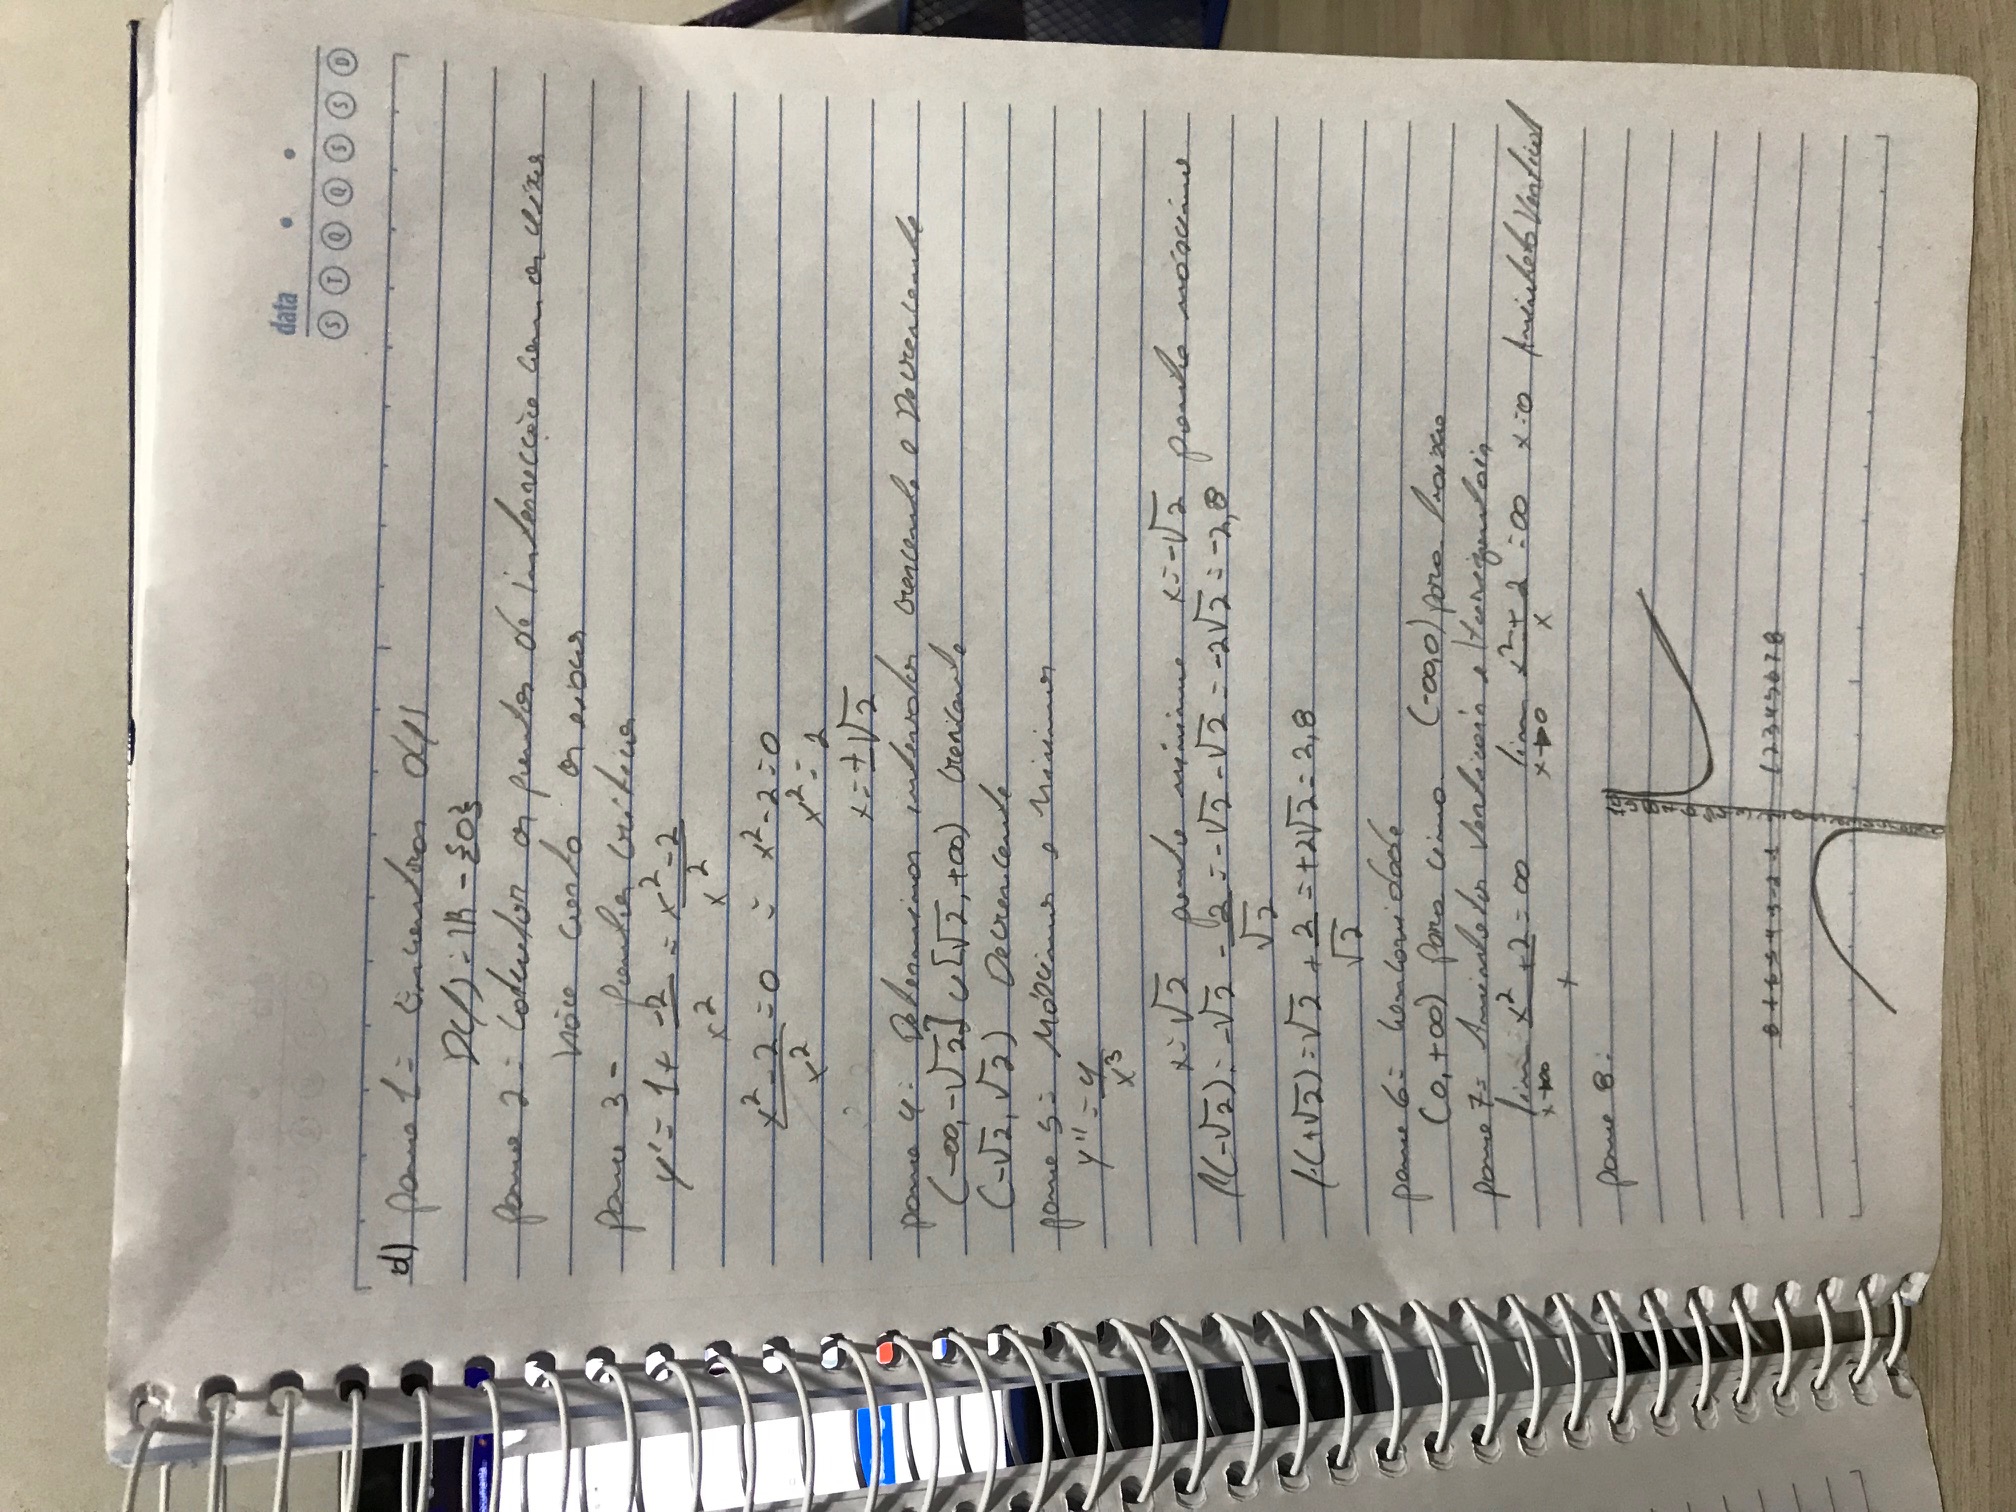 data
S T Q Q S S D
d) passo 1 = Encontrar d(f)
D(f) = IR - {0}
passo 2 = Calcular os pontos de intersecção com os eixos
Não corta os eixos
passo 3 - pontos críticos
y' = 1 + -2/x² = x² - 2/x²
x² - 2/x² = 0 = x² - 2 = 0
x² = 2
x = ±√2
passo 4: Determinar intervalos crescente e Decrescente
(-∞, -√2] ∪ [√2, +∞) Crescente
(-√2, √2) Decrescente
passo 5 = Máximos e Mínimos
y'' = 4/x³
x = √2 ponto mínimo x = -√2 ponto máximo
f(-√2) = -√2 - 2/√2 = -√2 - √2 = -2√2 = -2,8
f(+√2) = √2 + 2/√2 = +2√2 = 2,8
passo 6 = Concavidade
(0, +∞) para cima. (-∞,0) para baixo
passo 7 = Assíntotas Verticais e Horizontais
lim x→∞ x² + 2/x = ∞ lim x→0 x² + 2/x = ∞ x = 0 Assíntota Vertical
passo 8:
8 7 6 5 4 3 -2 -1 1 2 3 4 5 6 7 8